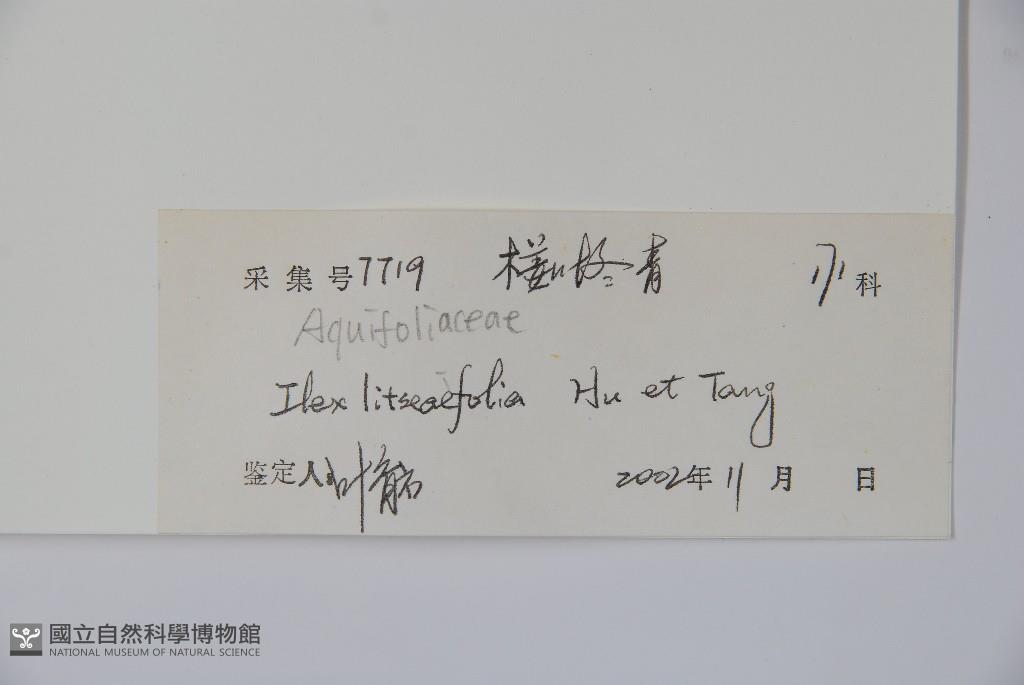 采集号 7719 冬青 科
Aquifoliaceae
Ilex litseaefolia Hu et Tang
鉴定人 叶 2002年 11 月 日
國立自然科學博物館
NATIONAL MUSEUM OF NATURAL SCIENCE